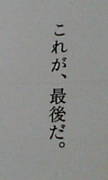 これが、最後だ。